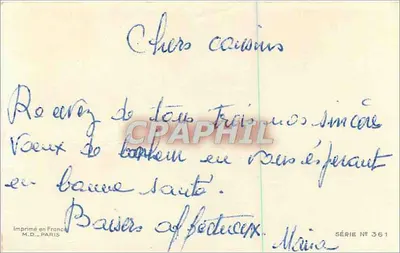 Chers cousins
Recevez de tous trois nos sincères
Vœux de bonheur en vous espérant
en bonne santé.
Baisers affectueux.
CPAPHIL
Imprimé en France
M.D._PARIS
SÉRIE Nº 361